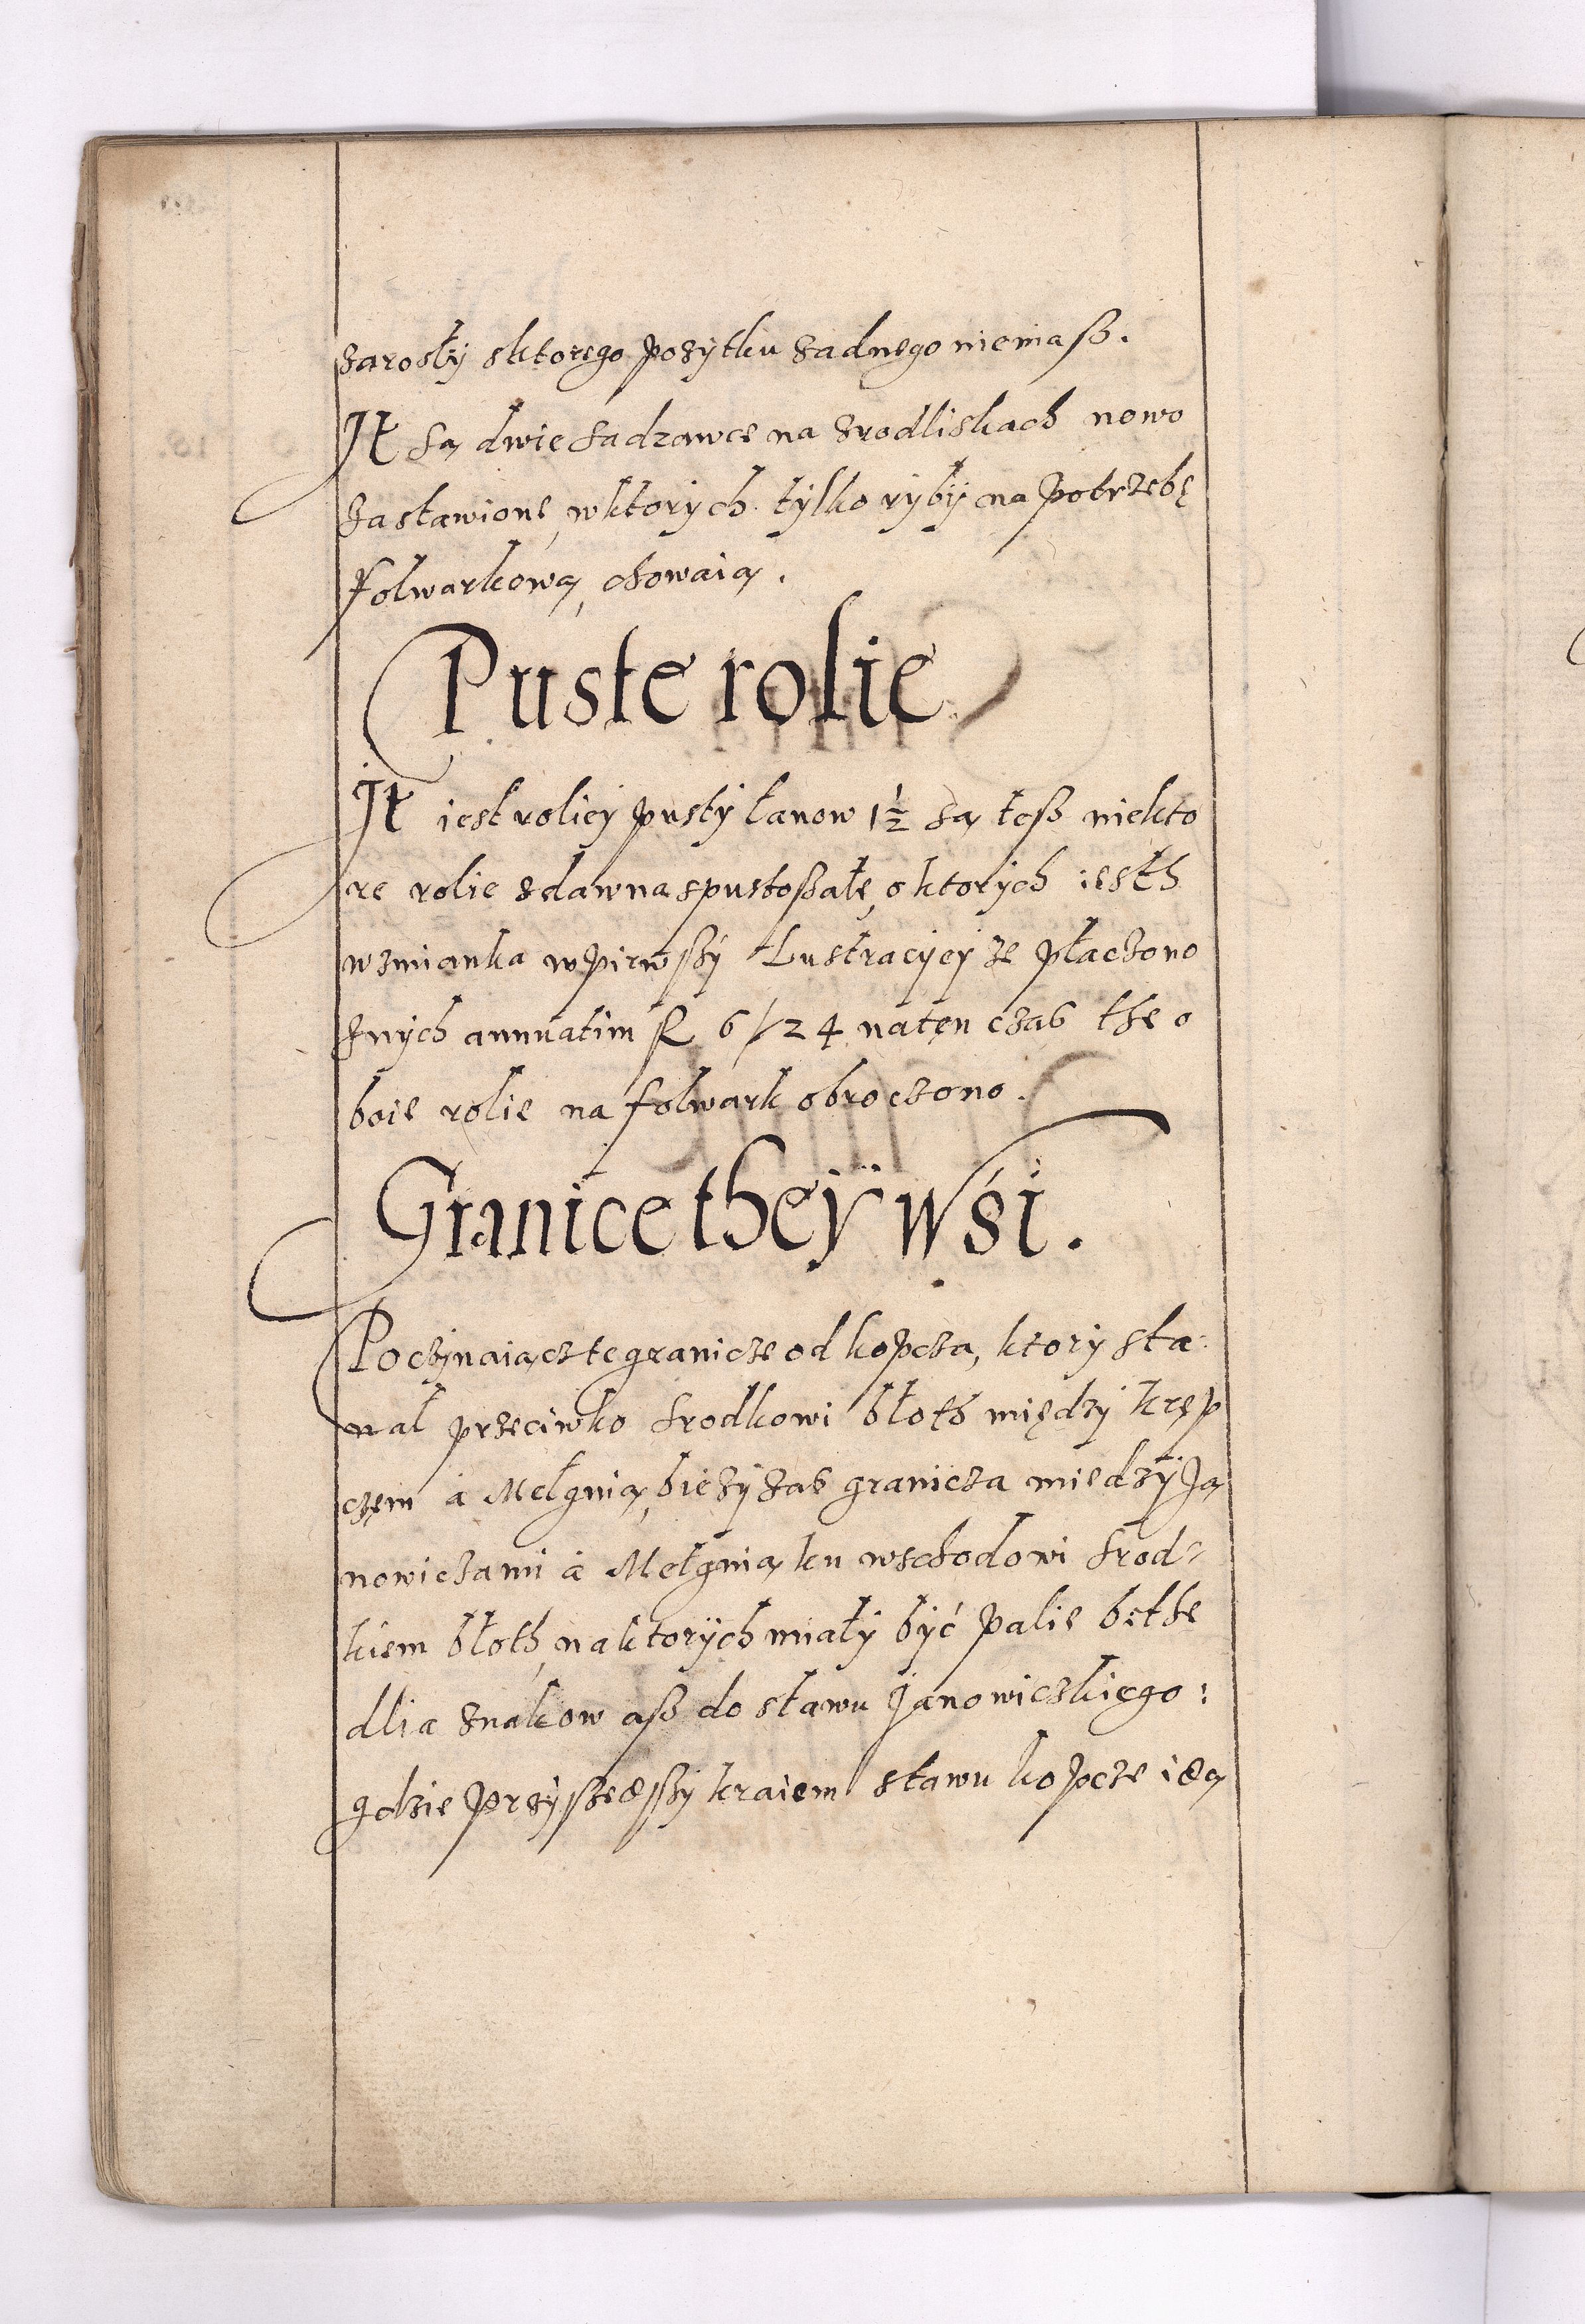 zarosły sktorego pozytku zadnego niemasz.
It są dwie sadzawce na zrodliskach nowo
zastawione, wktorych tylko ryby na potrzebę
folwarkową, chowaią.
Puste rolie
It iest roliey pusty łanow 1½ są tesz niekto
re rolie zdawna spustoszałe, o ktorych iesth
wzmianka wpirwszy Lustracyey ze płaczono
znych annuatim fl 6/24 natęn czas the o
boie rolie na folwark obroczono.
Granice they wśi.
Poczynaiącz te granicze od kopcza, ktory sta
nał przeciwko srodkowi błoth między Kręp
czem á Mełgnią, bieży zas granicza miedzy Ja
nowiczami á Mełgnią ku wschodowi srod-
kiem błoth, na ktorych miały być palie bithe
dlia znakow asz do stawu Janowiczkiego:
gdzie przyszedszy kraiem stawu kopcze idą